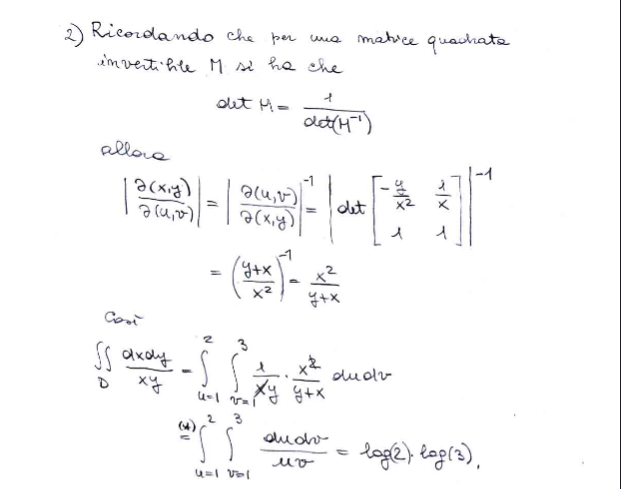 2) Ricordando che per una matrice quadrata
invertibile M si ha che
det M = 1/det(M⁻¹)
allora
|∂(x,y)/∂(u,v)| = |∂(u,v)/∂(x,y)|⁻¹ = |det [-y/x² 1/x; 1 1]|⁻¹
= ((y+x)/x²)⁻¹ = x²/(y+x)
Così
∬_D dxdy/xy = ∫_{u=1}^{2} ∫_{v=1}^{3} 1/xy · x²/(y+x) dudv
(*)= ∫_{u=1}^{2} ∫_{v=1}^{3} dudv/uv = log(2)·log(3),